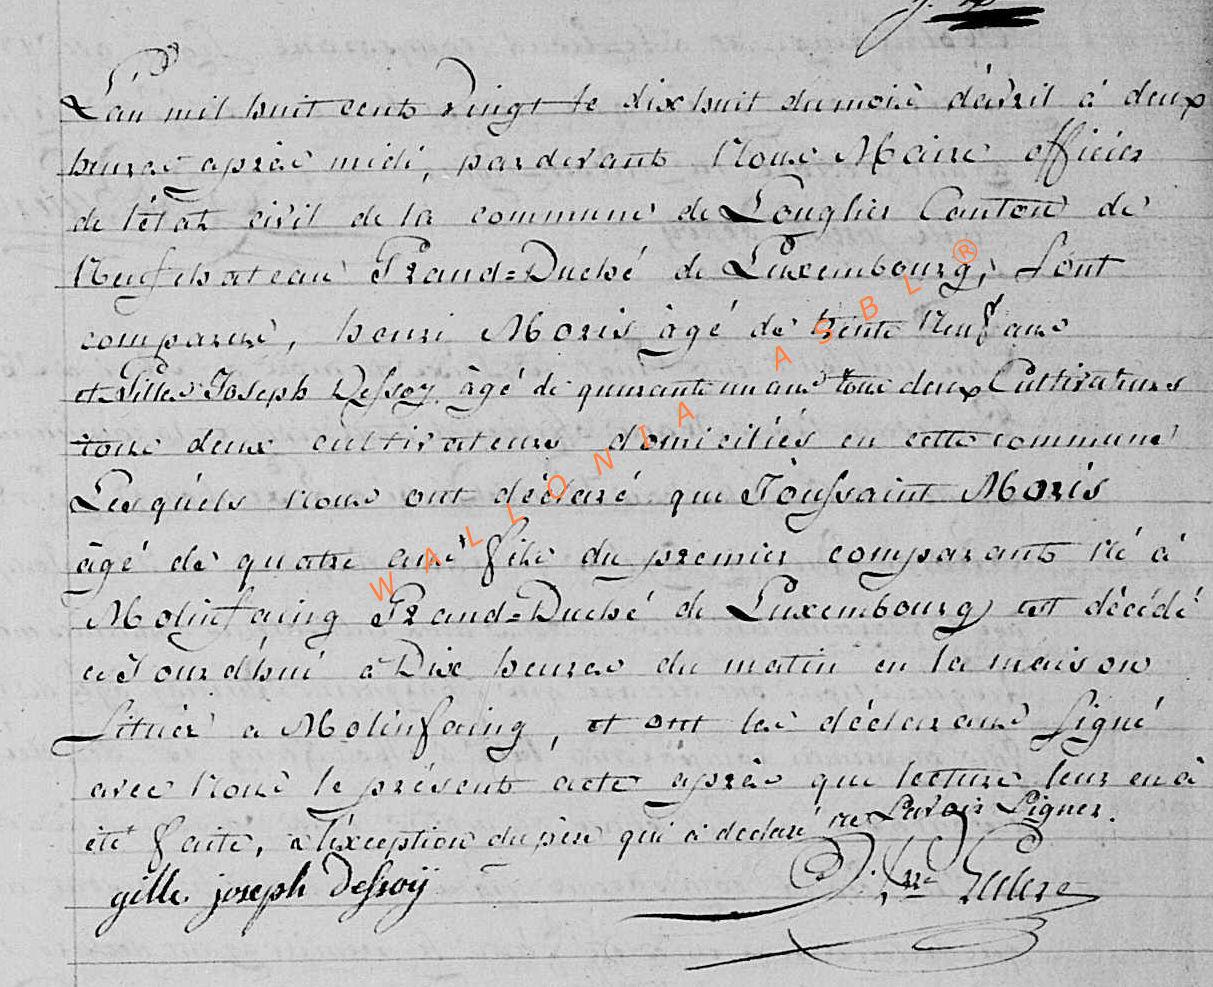 L'an mil huit cents vingt le dix huit du mois d'avril à deux
heures après midi, pardevants Nous Maire officier
de l'état civil de la commune de Longlier Canton de
Neufchateau Grand=Duché de Luxembourg, sont
comparus, henri Moris âgé de trente Neuf ans
et Gilles Joseph Dessoy âgé de quarante un ans tous deux Cultivateurs
tous deux cultivateurs domiciliés en cette commune
Lesquels nous ont déclaré que Toussaint Moris
âgé de quatre ans fils du premier comparants né à
Molinfaing Grand=Duché de Luxembourg est décédé
ce Jourd'hui à Dix heures du matin en la maison
située a Molinfaing, et ont les déclarans signé
avec Nous le présents acte après que lecture leur en à
été faite, à l'éxception du père qui à declaré ne Savoir Signer.
gille joseph Dessoÿ
WALLONIA ASBL ®